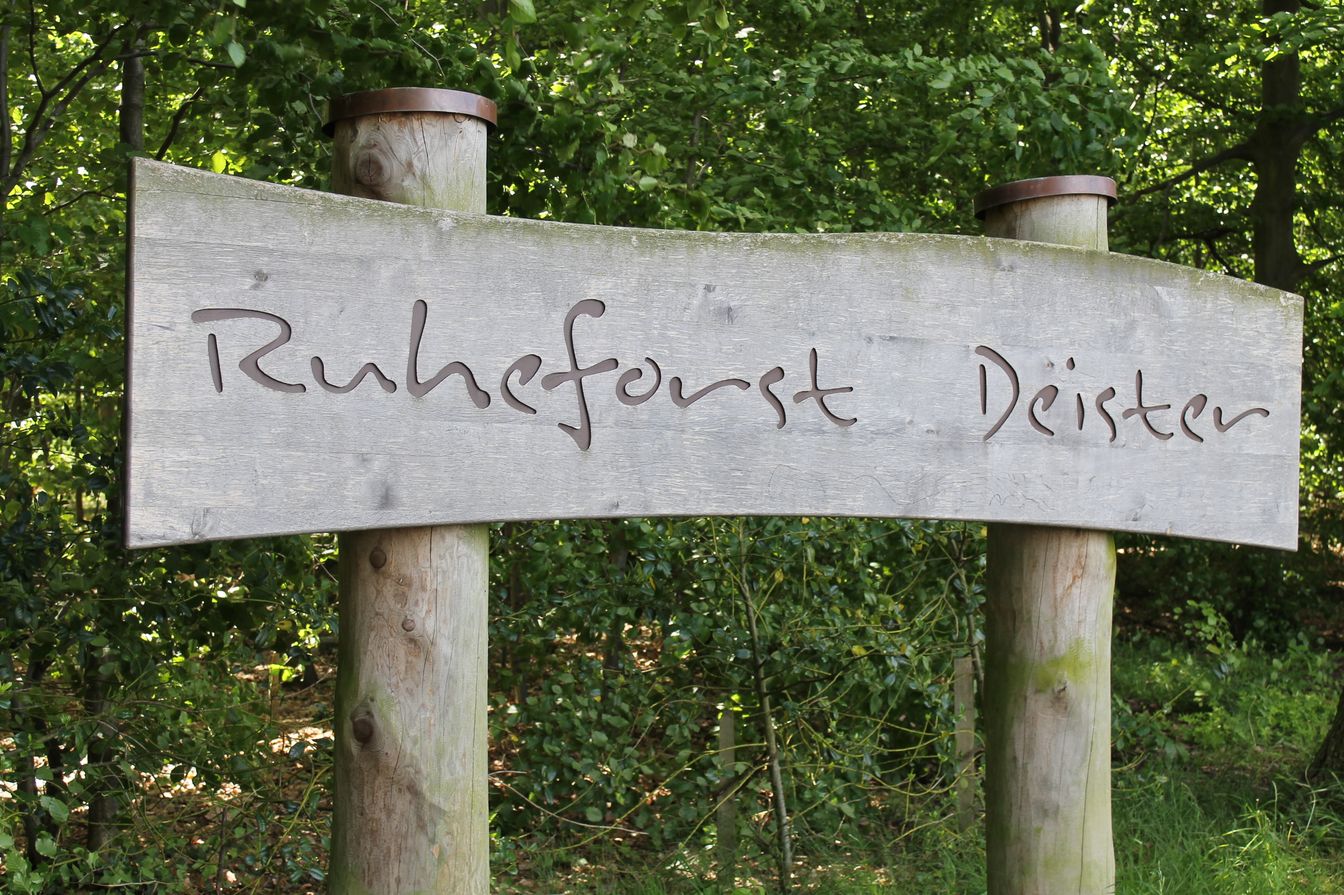 Ruheforst Deister